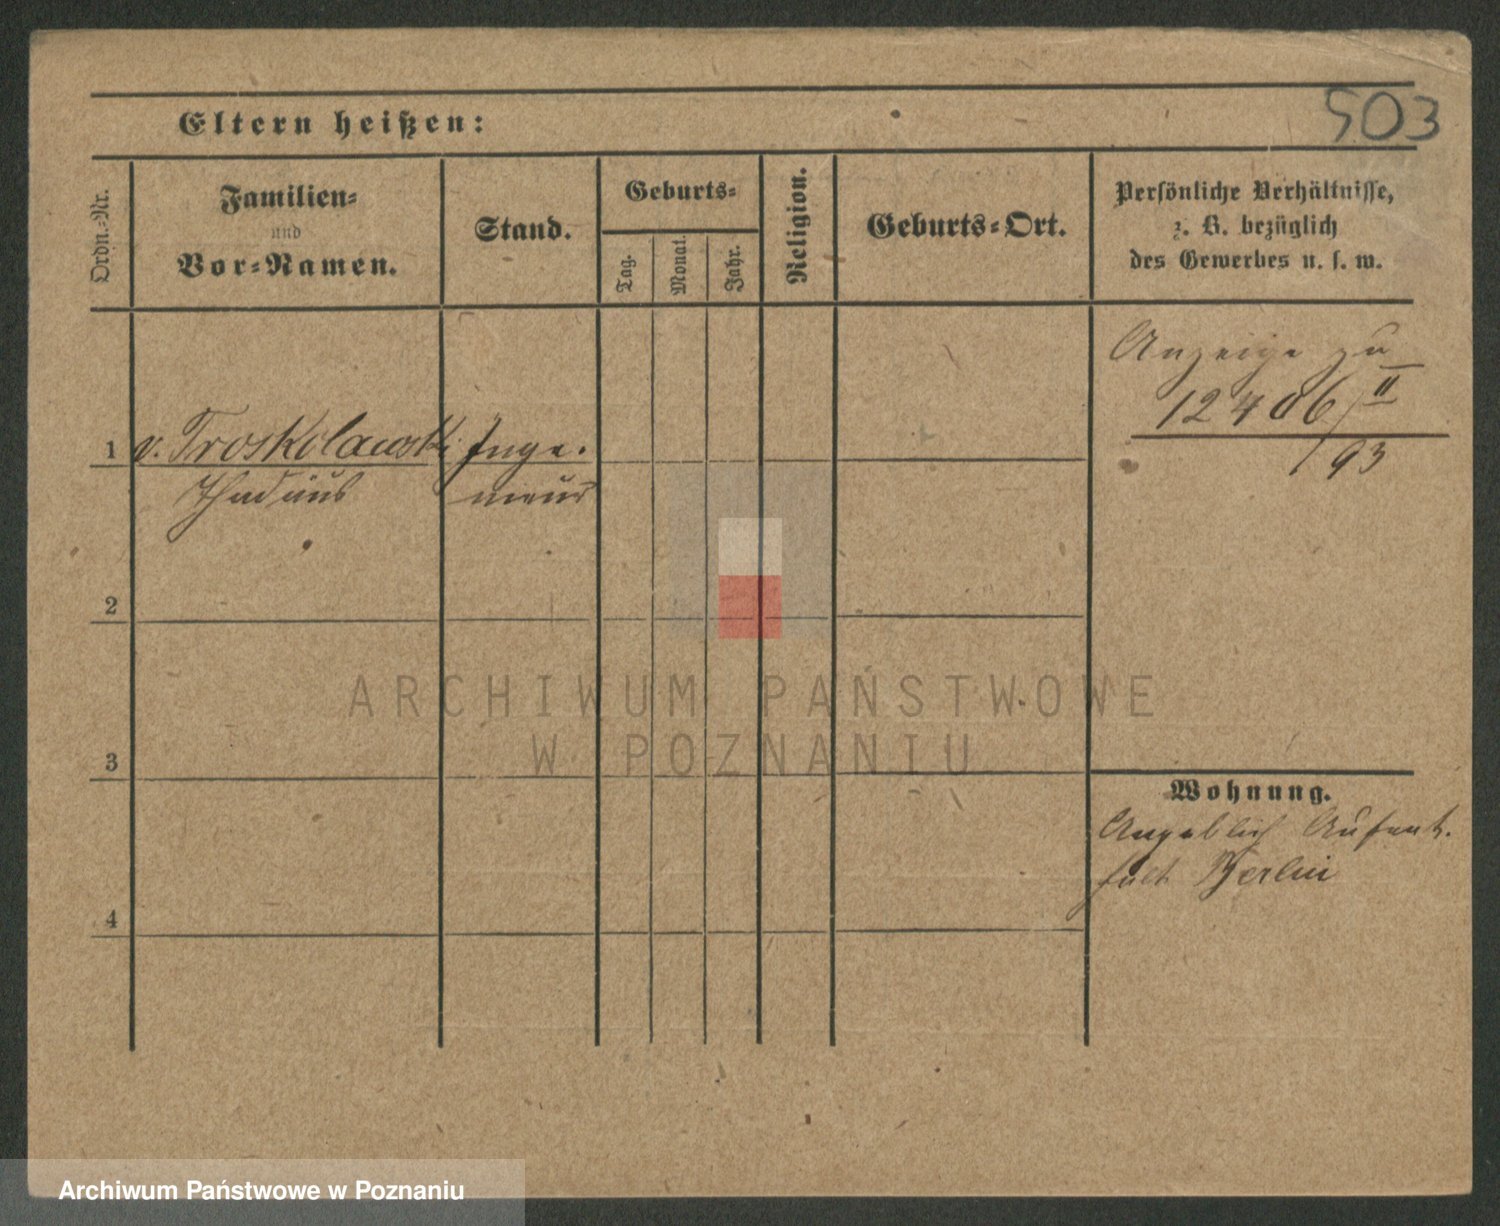 503
Eltern heißen:
Ordn.-Nr.
Familien-
und
Vor-Namen.
Stand.
Geburts-
Tag.
Monat.
Jahr.
Religion.
Geburts-Ort.
Persönliche Verhältnisse,
z. B. bezüglich
des Gewerbes u. s. w.
Anzeige zu
12406/II
/93
1 v. Troskolawski Inge-
Thadäus nieur
2
3
4
Wohnung.
Angeblich Aufent-
halt Berlin
ARCHIWUM PAŃSTWOWE
W POZNANIU
Archiwum Państwowe w Poznaniu